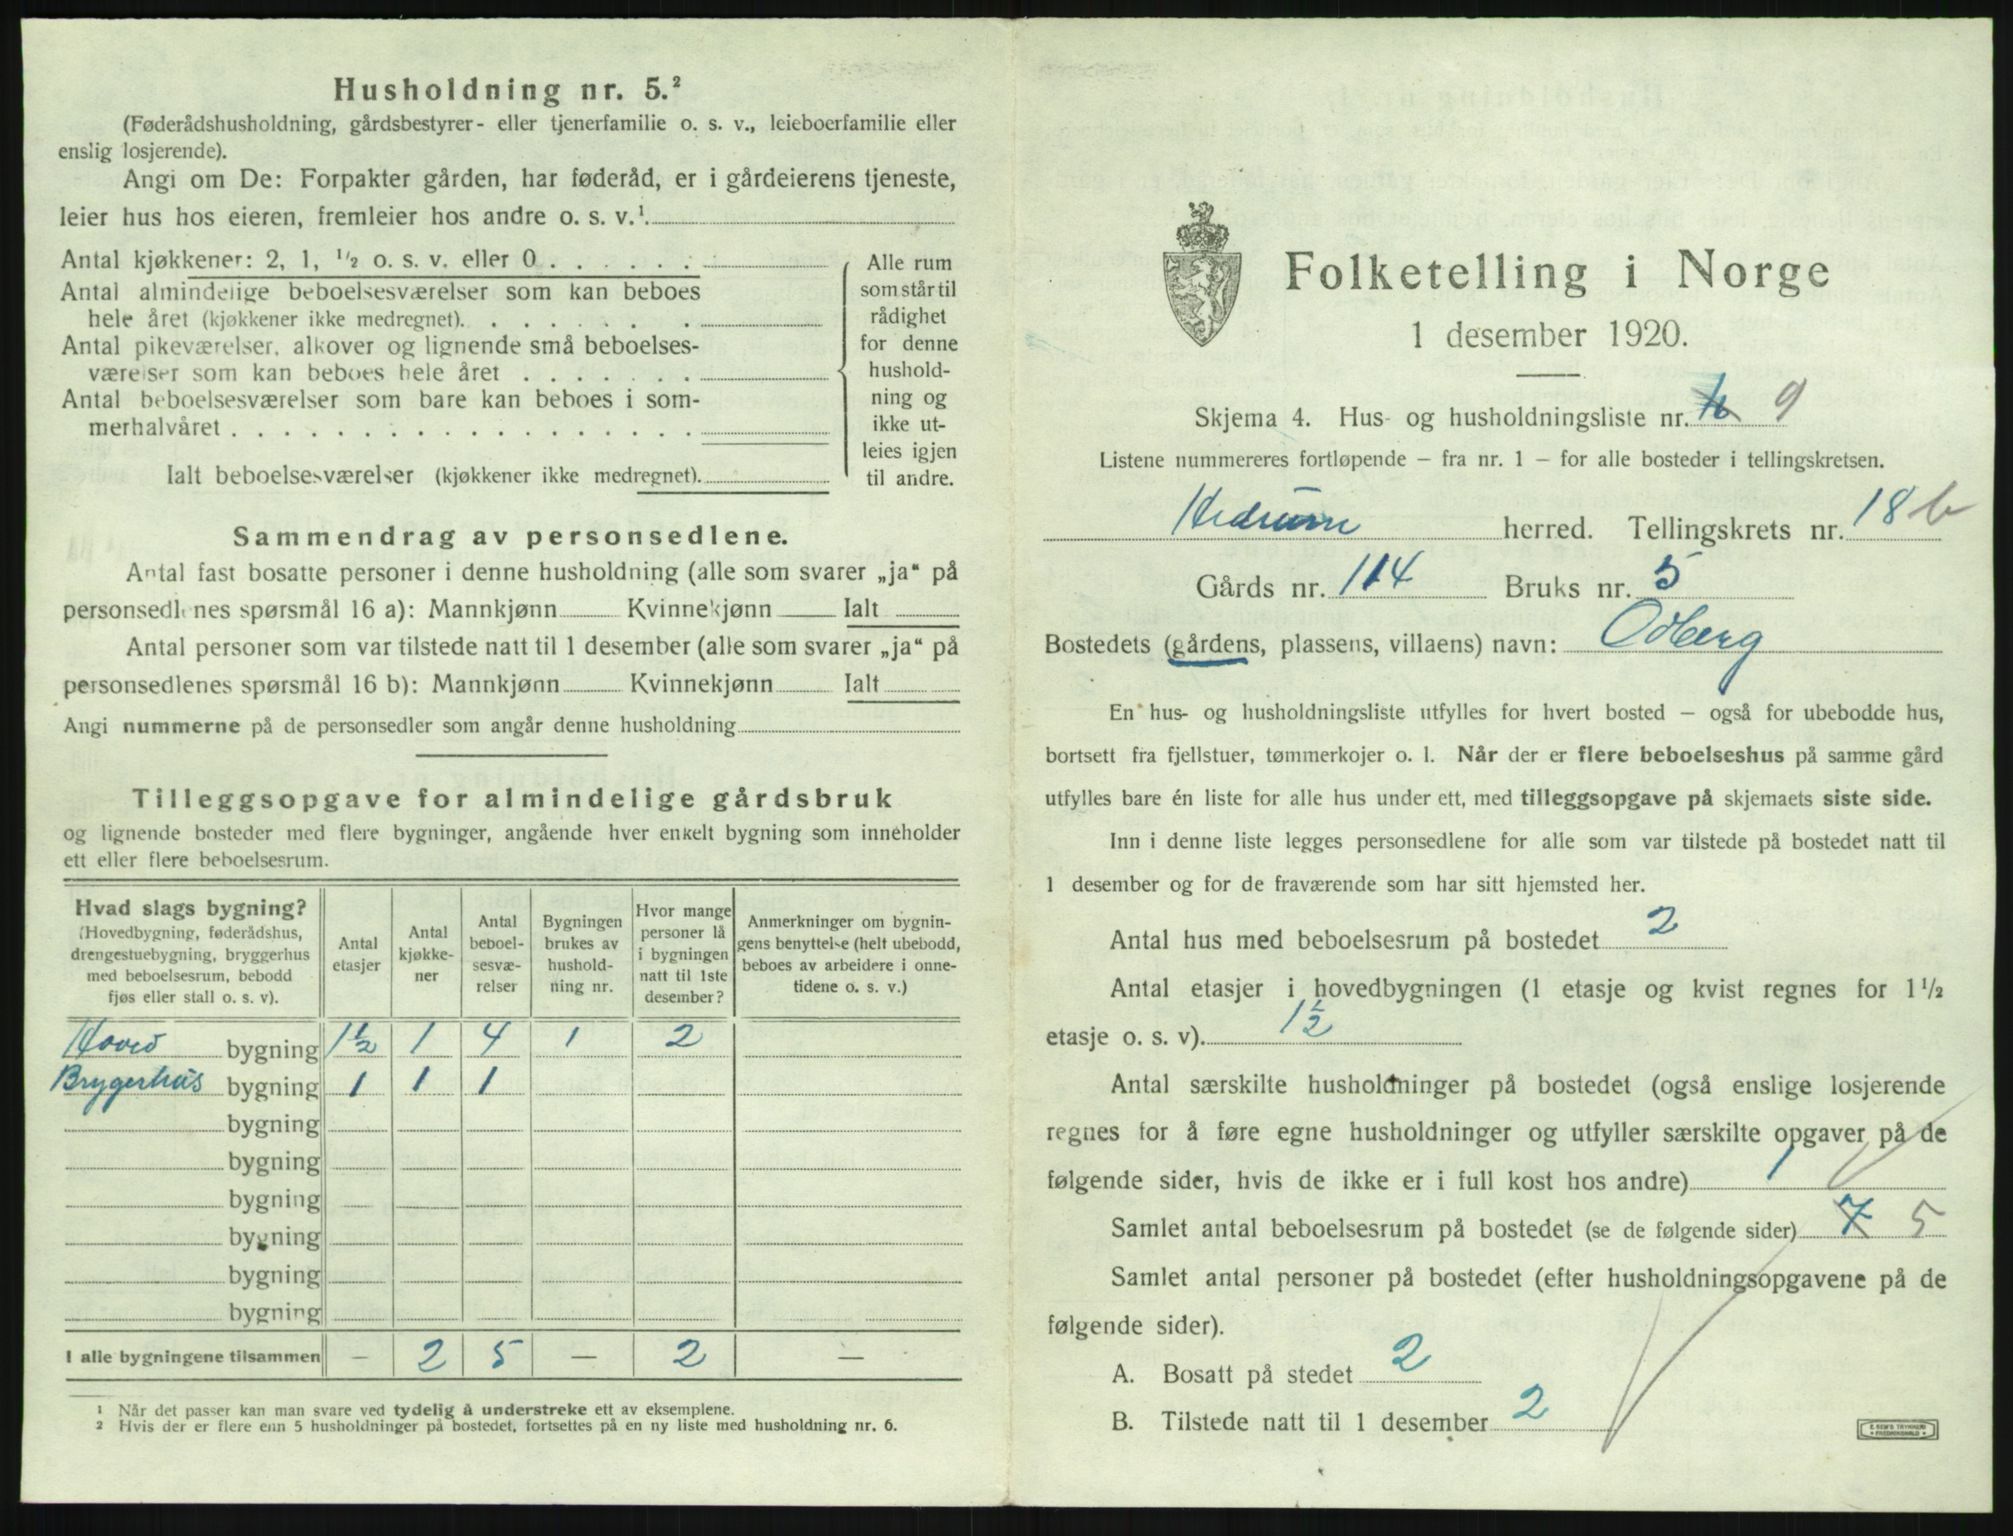 Husholdning nr. 5.²
(Føderådshusholdning, gårdsbestyrer- eller tjenerfamilie o. s. v., leieboerfamilie eller
enslig losjerende).
Angi om De: Forpakter gården, har føderåd, er i gårdeierens tjeneste,
leier hus hos eieren, fremleier hos andre o. s. v.¹
Antal kjøkkener: 2, 1, ½ o. s. v. eller 0
Antal almindelige beboelsesværelser som kan beboes
hele året (kjøkkener ikke medregnet).
Antal pikeværelser, alkover og lignende små beboelses-
værelser som kan beboes hele året
Antal beboelsesværelser som bare kan beboes i som-
merhalvåret
Ialt beboelsesværelser (kjøkkener ikke medregnet).
Alle rum
som står til
rådighet
for denne
hushold-
ning og
ikke ut-
leies igjen
til andre.
Sammendrag av personsedlene.
Antal fast bosatte personer i denne husholdning (alle som svarer „ja“ på
personsedlenes spørsmål 16 a): Mannkjønn Kvinnekjønn Ialt
Antal personer som var tilstede natt til 1 desember (alle som svarer „ja“ på
personsedlenes spørsmål 16 b): Mannkjønn Kvinnekjønn Ialt
Angi nummerne på de personsedler som angår denne husholdning
Tilleggsopgave for almindelige gårdsbruk
og lignende bosteder med flere bygninger, angående hver enkelt bygning som inneholder
ett eller flere beboelsesrum.
Hvad slags bygning?
(Hovedbygning, føderådshus,
drengestuebygning, bryggerhus
med beboelsesrum, bebodd
fjøs eller stall o. s. v).
Antal
etasjer
Antal
kjøkke-
ner
Antal
beboel-
sesvæ-
relser
Bygningen
brukes av
hushold-
ning nr.
Hvor mange
personer lå
i bygningen
natt til 1ste
desember?
Anmerkninger om bygnin-
gens benyttelse (helt ubebodd,
beboes av arbeidere i onne-
tidene o. s. v.)
Hoved bygning 1½ 1 4 1 2
Brygerhus bygning 1 1 1
bygning
bygning
bygning
bygning
bygning
bygning
I alle bygningene tilsammen — 2 5 — 2 —
¹ Når det passer kan man svare ved tydelig å understreke ett av eksemplene.
² Hvis der er flere enn 5 husholdninger på bostedet, fortsettes på en ny liste med husholdning nr. 6.
Folketelling i Norge
1 desember 1920.
Skjema 4. Hus- og husholdningsliste nr. 9
Listene nummereres fortløpende – fra nr. 1 – for alle bosteder i tellingskretsen.
Hedrum herred. Tellingskrets nr. 18 b
Gårds nr. 114 Bruks nr. 5
Bostedets (gårdens, plassens, villaens) navn: Odberg
En hus- og husholdningsliste utfylles for hvert bosted – også for ubebodde hus,
bortsett fra fjellstuer, tømmerkojer o. l. Når der er flere beboelseshus på samme gård
utfylles bare én liste for alle hus under ett, med tilleggsopgave på skjemaets siste side.
Inn i denne liste legges personsedlene for alle som var tilstede på bostedet natt til
1 desember og for de fraværende som har sitt hjemsted her.
Antal hus med beboelsesrum på bostedet 2
Antal etasjer i hovedbygningen (1 etasje og kvist regnes for 1½
etasje o. s. v). 1½
Antal særskilte husholdninger på bostedet (også enslige losjerende
regnes for å føre egne husholdninger og utfyller særskilte opgaver på de
følgende sider, hvis de ikke er i full kost hos andre) 1
Samlet antal beboelsesrum på bostedet (se de følgende sider) 7 5
Samlet antal personer på bostedet (efter husholdningsopgavene på de
følgende sider).
A. Bosatt på stedet 2
B. Tilstede natt til 1 desember 2
E. SEM'S TRYKKERI
FREDRIKSHALD